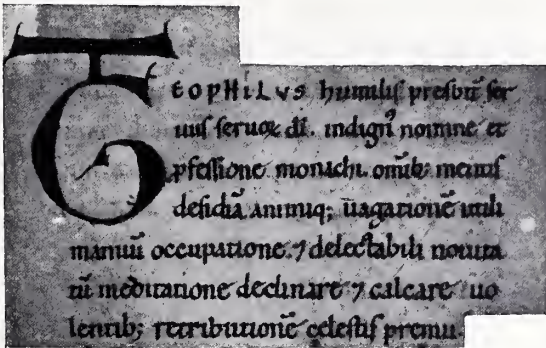 TEOPHILVS humilis presbit̄ ser
uus seruoꝝ dī. indign᾽ nomine et
ꝓfessione monachi. om̄ib; mentis
desidiā animiq; uagationē utili
manuū occupatione. ⁊ delectabili nouita
tū meditatione declinare ⁊ calcare uo
lentib; retributionē celestis premii.